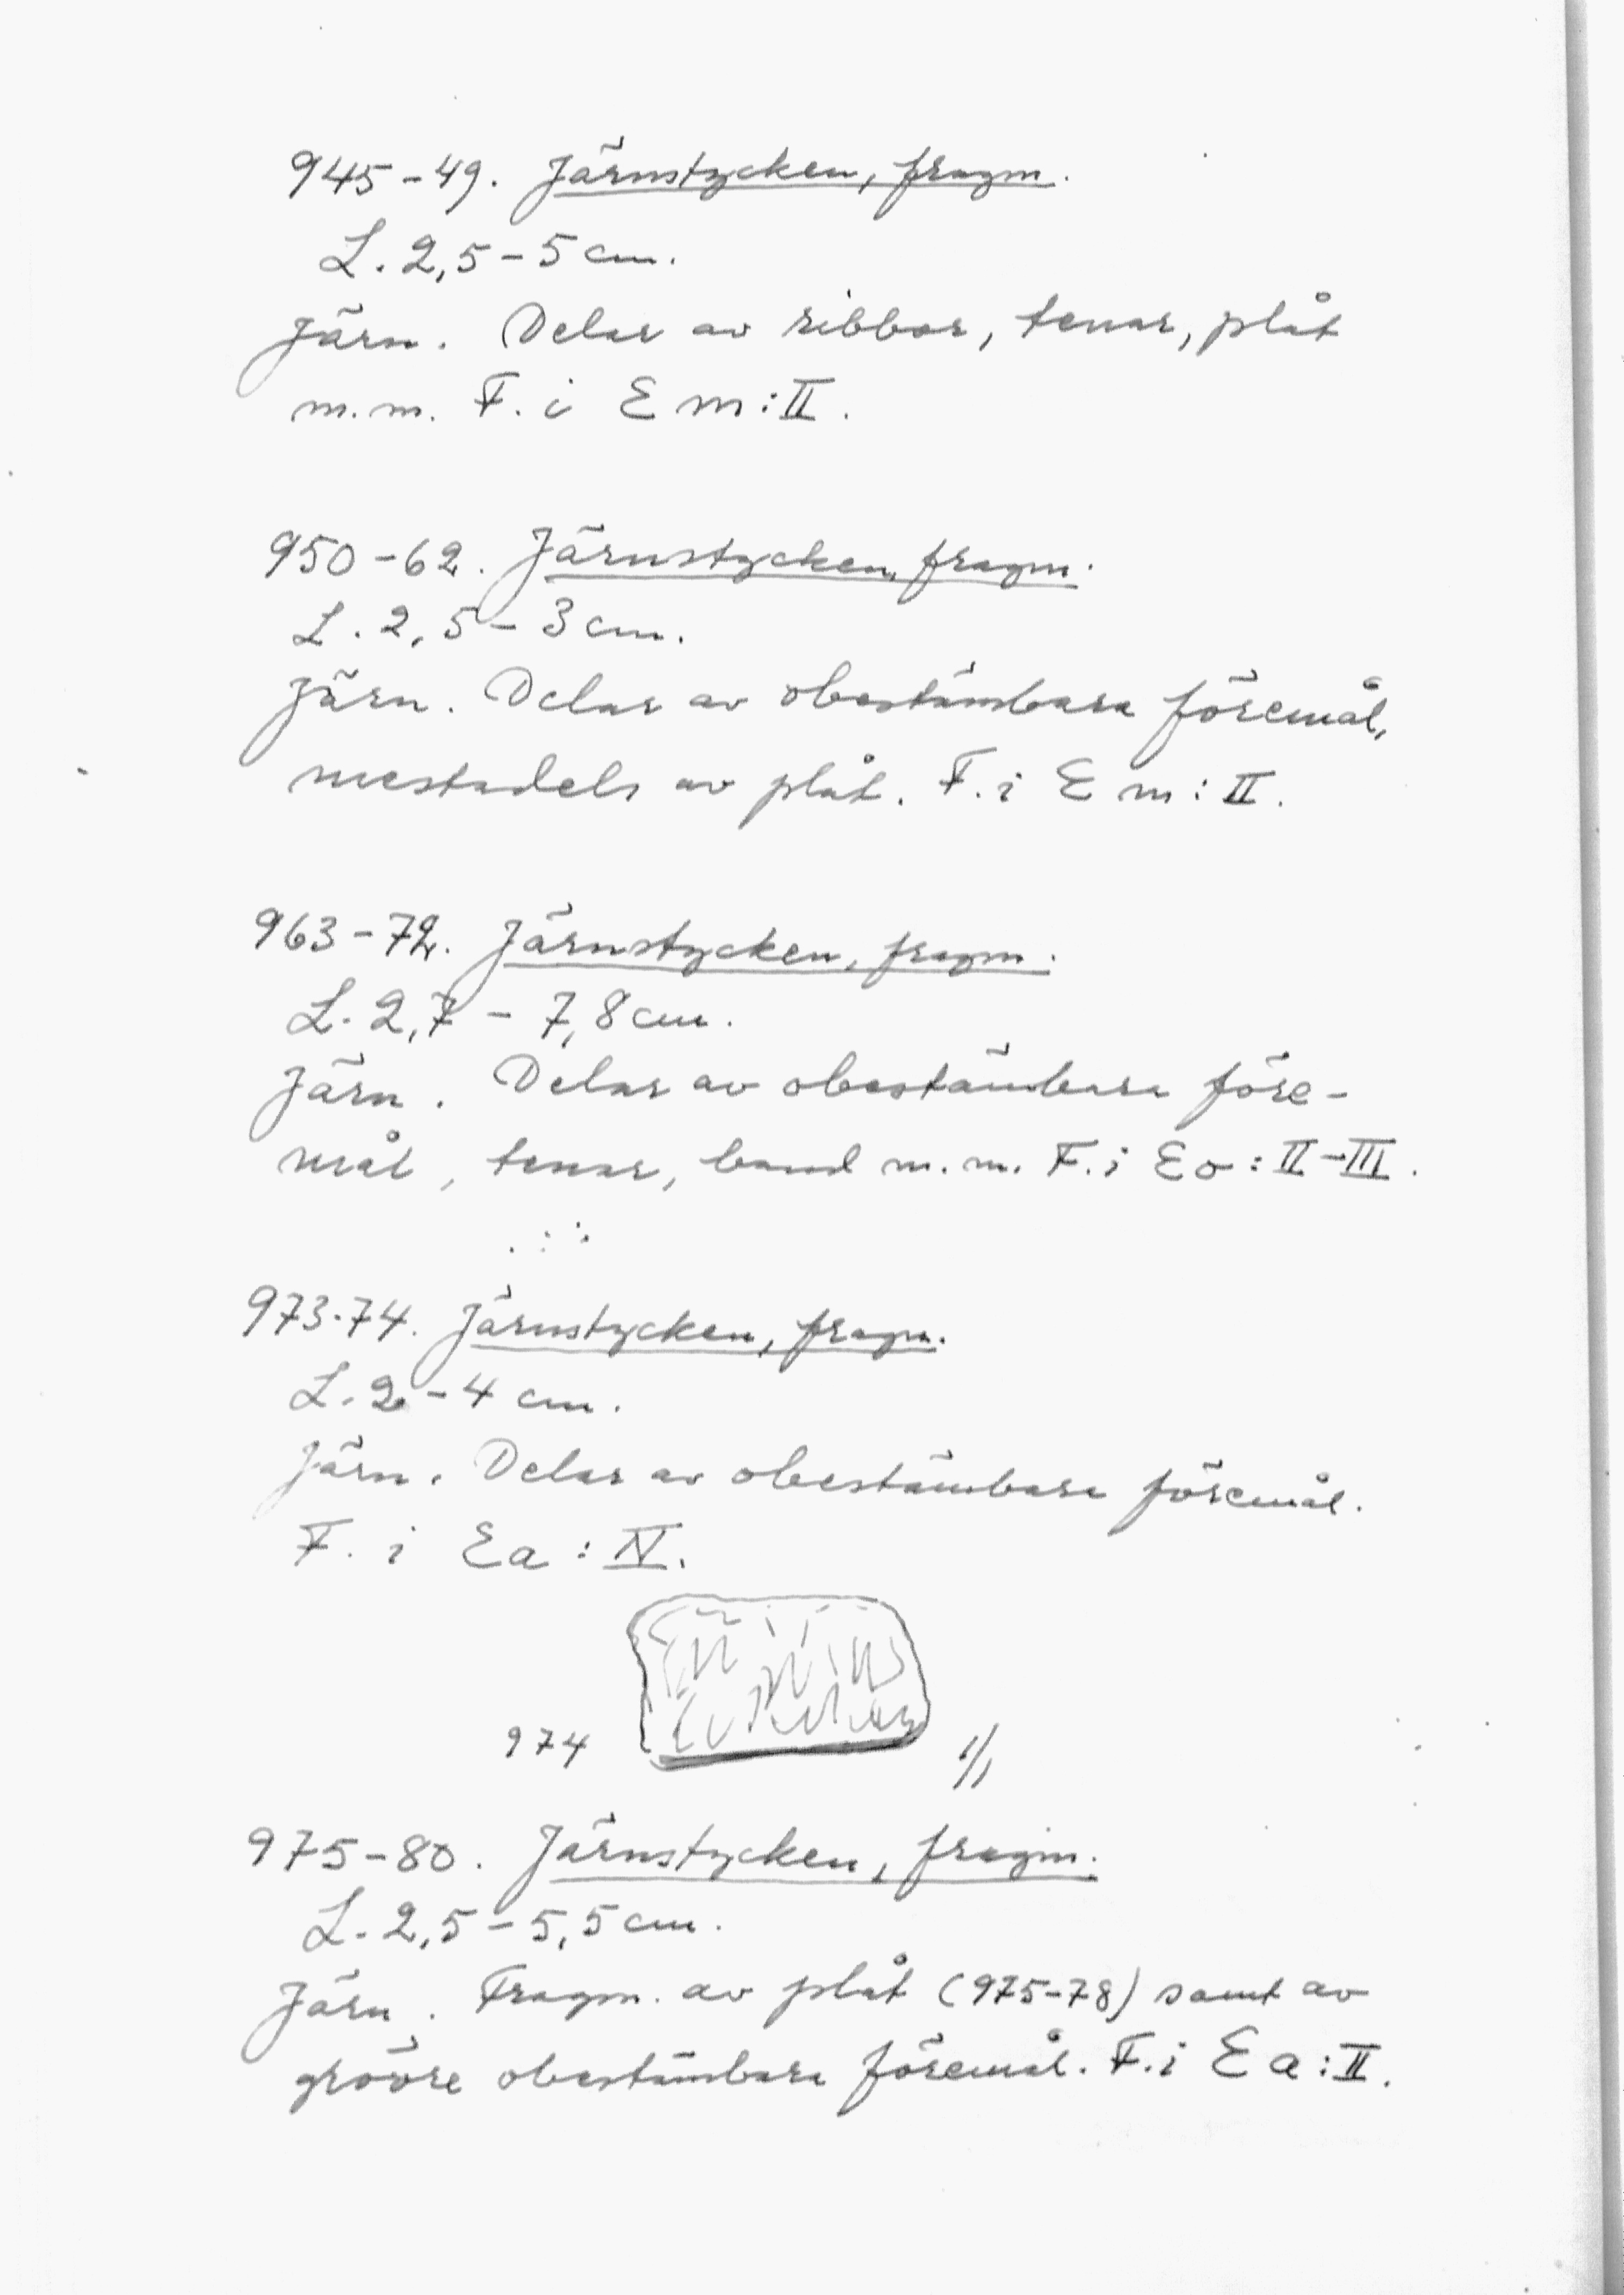 945-49. Järnstycken, fragm.
L. 2,5-5 cm.
Järn. Delar av ribbor, tenar, plåt
m.m. F. i Em:II.
950-62. Järnstycken, fragm.
L. 2,5-3 cm.
Järn. Delar av obestämbara föremål,
mestadels av plåt. F. i Em:II.
963-72. Järnstycken, fragm.
L. 2,7-7,8 cm.
Järn. Delar av obestämbara före-
mål, tenar, band m.m. F. i Eo:II-III.
973-74. Järnstycken, fragm.
L. 2-4 cm.
Järn. Delar av obestämbara föremål.
F. i Ea:IV.
974 1/1
975-80. Järnstycken, fragm.
L. 2,5-5,5 cm.
Järn. Fragm. av plåt (975-78) samt av
grövre obestämbara föremål. F. i Ea:II.